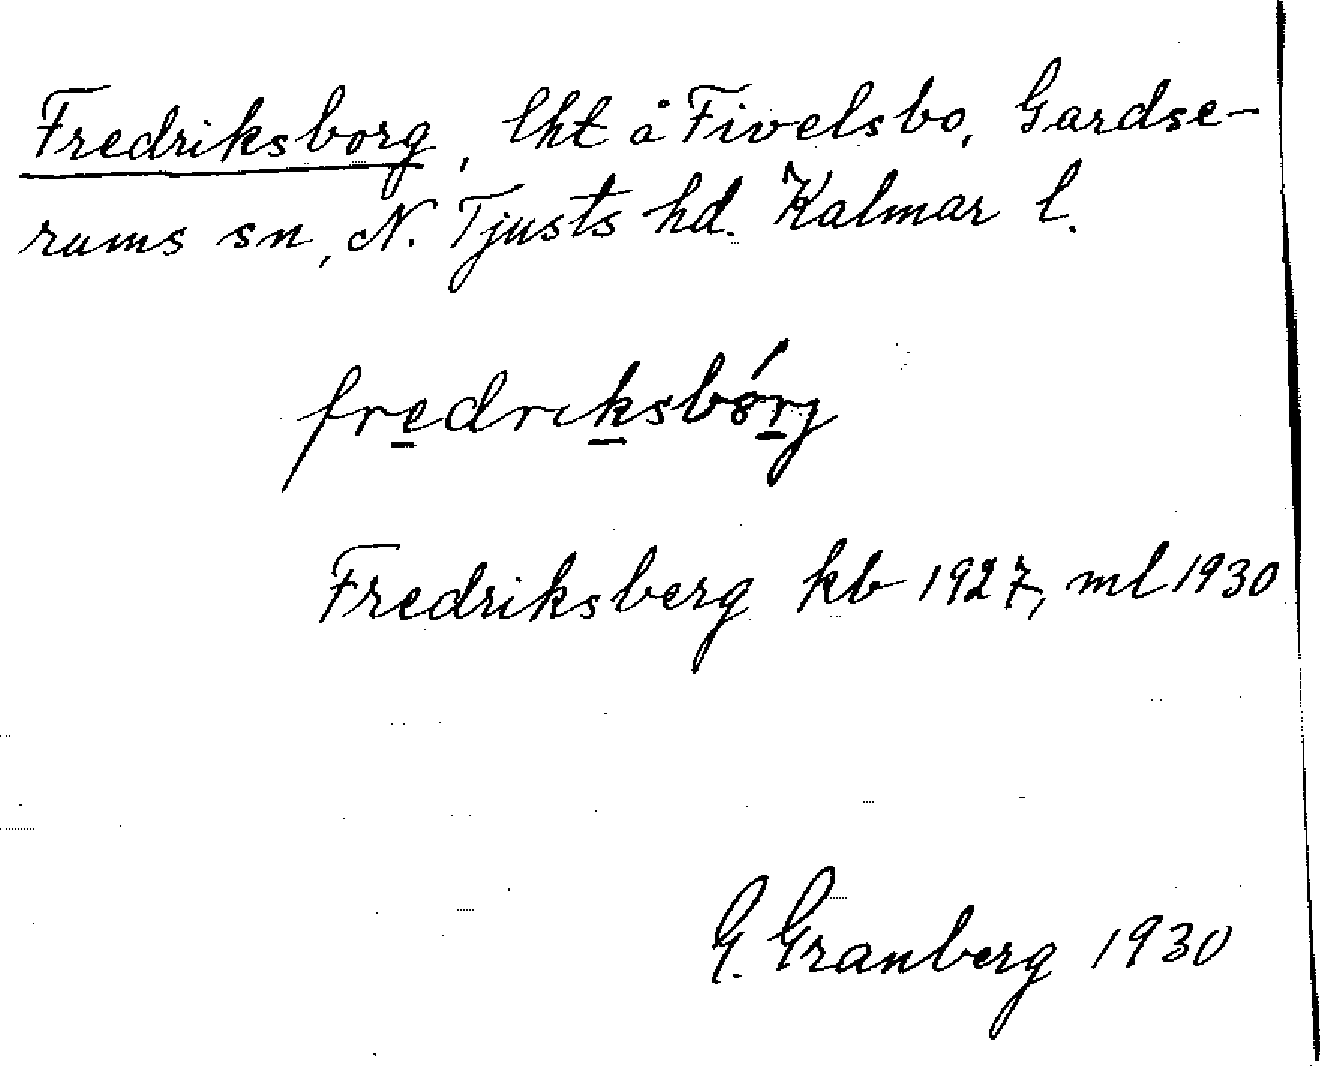 Fredriksborg, lht å Fivelsbo, Gardse-
rums sn, N. Tjusts hd. Kalmar l.
fredriksbórj
Fredriksberg kb 1927, ml 1930
G. Granberg 1930